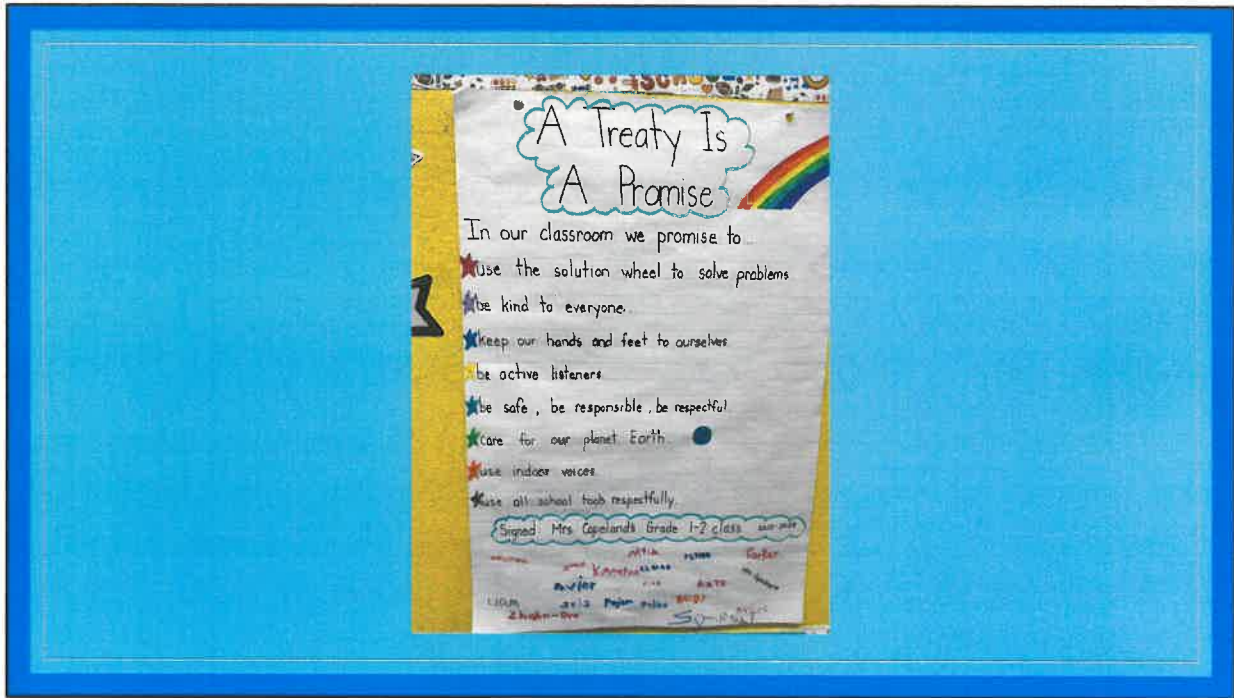 A Treaty Is
A Promise
In our classroom we promise to...
use the solution wheel to solve problems
be kind to everyone..
keep our hands and feet to ourselves
be active listeners
be safe, be responsible, be respectful
care for our planet Earth
use indoor voices
use all school tools respectfully.
Signed Mrs Copeland's Grade 1-2 class
Parker
Liam